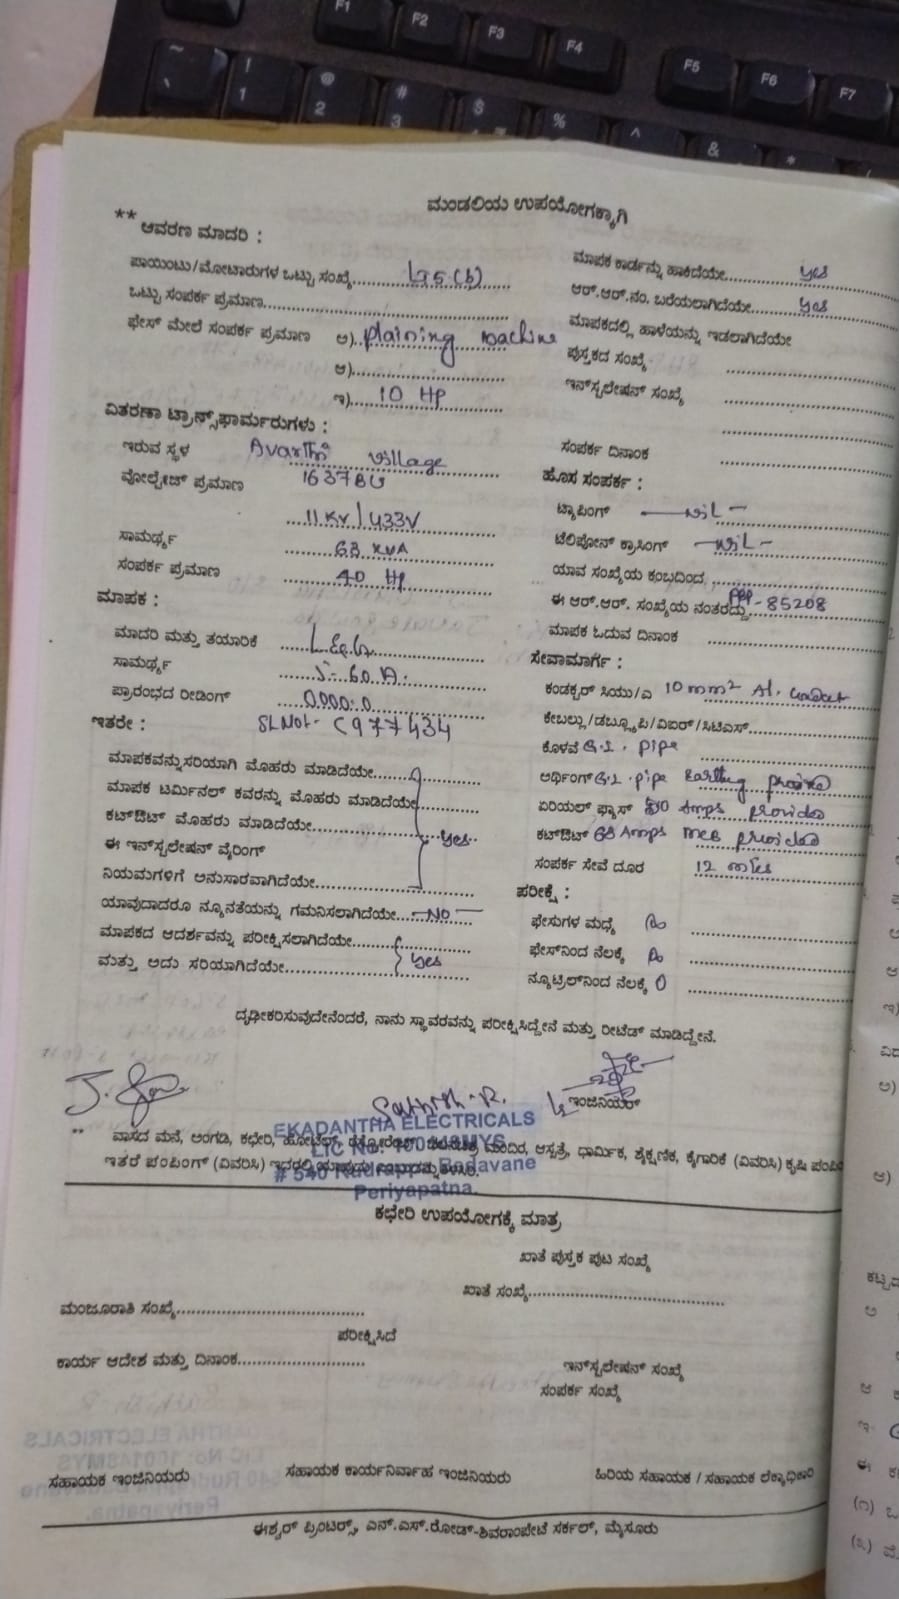 F1 F2 F3 F4 F5 F6 F7
~ ! 1 @ 2 # 3 $ % ^ & *
ಮಂಡಲಿಯ ಉಪಯೋಗಕ್ಕಾಗಿ
** ಆವರಣ ಮಾದರಿ :
ಪಾಯಿಂಟು/ಮೋಟಾರುಗಳ ಒಟ್ಟು ಸಂಖ್ಯೆ
ಒಟ್ಟು ಸಂಪರ್ಕ ಪ್ರಮಾಣ
ಫೇಸ್ ಮೇಲೆ ಸಂಪರ್ಕ ಪ್ರಮಾಣ ಅ) plaining machine
ಆ)
ಇ) 10 HP
ವಿತರಣಾ ಟ್ರಾನ್ಸ್‌ಫಾರ್ಮರುಗಳು :
ಇರುವ ಸ್ಥಳ Avarthi village
ವೋಲ್ಟೇಜ್ ಪ್ರಮಾಣ
11 KV/433V
ಸಾಮರ್ಥ್ಯ 63 KVA
ಸಂಪರ್ಕ ಪ್ರಮಾಣ 40 HP
ಮಾಪಕ :
ಮಾದರಿ ಮತ್ತು ತಯಾರಿಕೆ
ಸಾಮರ್ಥ್ಯ
ಪ್ರಾರಂಭದ ರೀಡಿಂಗ್ 0000.0
ಇತರೇ : SL.No:- C977434
ಮಾಪಕವನ್ನು ಸರಿಯಾಗಿ ಮೊಹರು ಮಾಡಿದೆಯೇ
ಮಾಪಕ ಟರ್ಮಿನಲ್ ಕವರನ್ನು ಮೊಹರು ಮಾಡಿದೆಯೇ
ಕಟ್‌ಔಟ್ ಮೊಹರು ಮಾಡಿದೆಯೇ Yes
ಈ ಇನ್‌ಸ್ಟಲೇಷನ್ ವೈರಿಂಗ್
ನಿಯಮಗಳಿಗೆ ಅನುಸಾರವಾಗಿದೆಯೇ
ಯಾವುದಾದರೂ ನ್ಯೂನತೆಯನ್ನು ಗಮನಿಸಲಾಗಿದೆಯೇ -NO-
ಮಾಪಕದ ಆದರ್ಶವನ್ನು ಪರೀಕ್ಷಿಸಲಾಗಿದೆಯೇ
ಮತ್ತು ಅದು ಸರಿಯಾಗಿದೆಯೇ Yes
ಮಾಪಕ ಕಾರ್ಡನ್ನು ಹಾಕಿದೆಯೇ yes
ಆರ್.ಆರ್.ನಂ. ಬರೆಯಲಾಗಿದೆಯೇ yes
ಮಾಪಕದಲ್ಲಿ ಹಾಳೆಯನ್ನು ಇಡಲಾಗಿದೆಯೇ
ಪುಸ್ತಕದ ಸಂಖ್ಯೆ
ಇನ್‌ಸ್ಟಲೇಷನ್ ಸಂಖ್ಯೆ
ಸಂಪರ್ಕ ದಿನಾಂಕ
ಹೊಸ ಸಂಪರ್ಕ :
ಟ್ಯಾಪಿಂಗ್ -NIL-
ಟೆಲಿಫೋನ್ ಕ್ರಾಸಿಂಗ್ -NIL-
ಯಾವ ಸಂಖ್ಯೆಯ ಕಂಬದಿಂದ
ಈ ಆರ್.ಆರ್. ಸಂಖ್ಯೆಯ ನಂತರದ್ದು PPP-85208
ಮಾಪಕ ಓದುವ ದಿನಾಂಕ
ಸೇವಾಮಾರ್ಗ :
ಕಂಡಕ್ಟರ್ ಸಿಯು/ಎ 10mm2 Al.
ಕೇಬಲ್ಲು/ಡಬ್ಲ್ಯೂಪಿ/ವಿಐಆರ್/ಸಿಟಿಎಸ್
ಕೊಳವೆ G.I. pipe
ಅರ್ಥಿಂಗ್ G.I. pipe Earthing
ಏರಿಯಲ್ ಫ್ಯೂಸ್ Amps
ಕಟ್‌ಔಟ್ 63 Amps MCB
ಸಂಪರ್ಕ ಸೇವೆ ದೂರ 12 mtes
ಪರೀಕ್ಷೆ :
ಫೇಸುಗಳ ಮಧ್ಯೆ
ಫೇಸ್‌ನಿಂದ ನೆಲಕ್ಕೆ
ನ್ಯೂಟ್ರಲ್‌ನಿಂದ ನೆಲಕ್ಕೆ 0
ದೃಢೀಕರಿಸುವುದೇನೆಂದರೆ, ನಾನು ಸ್ಥಾವರವನ್ನು ಪರೀಕ್ಷಿಸಿದ್ದೇನೆ ಮತ್ತು ರೀಟೆಡ್ ಮಾಡಿದ್ದೇನೆ.
Sathish.R. ಇಂಜಿನಿಯರ್
EKADANTHA ELECTRICALS
** ವಾಸದ ಮನೆ, ಅಂಗಡಿ, ಕಛೇರಿ, ಹೋಟೆಲ್, ಮಂದಿರ, ಆಸ್ಪತ್ರೆ, ಧಾರ್ಮಿಕ, ಶೈಕ್ಷಣಿಕ, ಕೈಗಾರಿಕೆ (ವಿವರಿಸಿ) ಕೃಷಿ ಪಂಪಿಂ
LIC No: 100143MYS
ಇತರೆ ಪಂಪಿಂಗ್ (ವಿವರಿಸಿ)
# 540 Rudrappa Badavane
Periyapatna.
ಕಛೇರಿ ಉಪಯೋಗಕ್ಕೆ ಮಾತ್ರ
ಖಾತೆ ಪುಸ್ತಕ ಪುಟ ಸಂಖ್ಯೆ
ಖಾತೆ ಸಂಖ್ಯೆ
ಮಂಜೂರಾತಿ ಸಂಖ್ಯೆ
ಪರೀಕ್ಷಿಸಿದೆ
ಕಾರ್ಯ ಆದೇಶ ಮತ್ತು ದಿನಾಂಕ
ಇನ್‌ಸ್ಟಲೇಷನ್ ಸಂಖ್ಯೆ
ಸಂಪರ್ಕ ಸಂಖ್ಯೆ
ಸಹಾಯಕ ಇಂಜಿನಿಯರು ಸಹಾಯಕ ಕಾರ್ಯನಿರ್ವಾಹ ಇಂಜಿನಿಯರು ಹಿರಿಯ ಸಹಾಯಕ / ಸಹಾಯಕ ಲೆಕ್ಕಾಧಿಕಾರಿ
ಈಶ್ವರ್ ಪ್ರಿಂಟರ್ಸ್, ಎನ್.ಎಸ್.ರೋಡ್-ಶಿವರಾಂಪೇಟೆ ಸರ್ಕಲ್, ಮೈಸೂರು